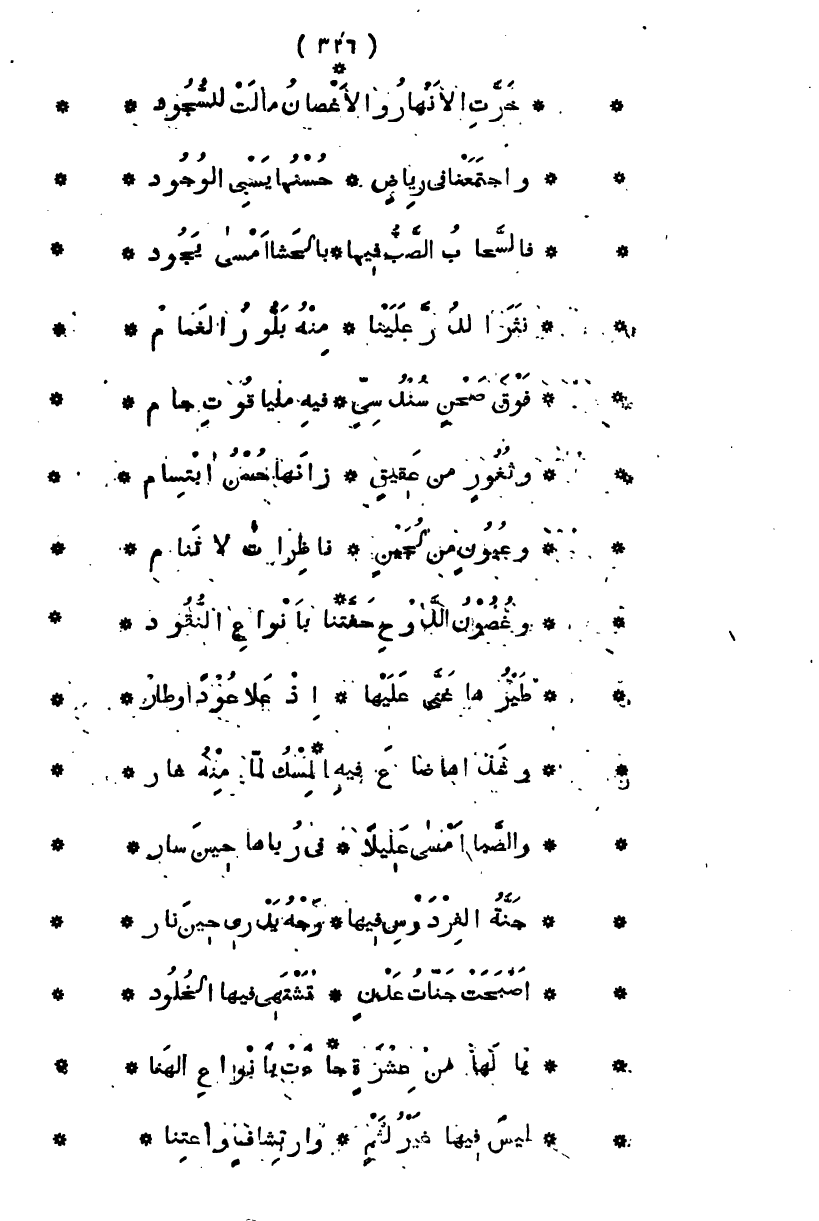 ( ٣٢٦ )
* * خَرَّتِ الأَنْهارُ والأَغْصانُ مالَتْ للسُّجُود * *
* * واجتمَعْنا فى رِياضٍ * حُسْنُها يَسْبِى الوُجُود * *
* * فالسَّحابُ الصَّبُّ فِيها * بالحَشا أمْسَى يَجُود * *
* * نَثَرَ الدُّرَّ عَلَيْنا * مِنْهُ بَلُّورُ الغَمام * *
* * فَوْقَ صَحْنٍ سُنْدُسِىٍّ * فيهِ مليا قُوتِ جام * *
* * وثُغُورٍ من عَقِيقٍ * زانَها حُسْنُ ابْتِسام * *
* * وعُيُونٍ من لُجَيْنٍ * ناظِراتٌ لا تَنام * *
* * وغُصُوْنُ الدَّوْحِ حَفَّتْنا بأَنْواعِ النُّقُود * *
* * طَيْرُها غَنَّى عَلَيْها * إذْ عَلا عُوْدًا وطار * *
* * وشَذاها ضاعَ فيهِ المِسْكُ لمّا مِنْهُ غار * *
* * والصَّبا أمْسَى عَلِيلًا * فى رُباها حِينَ سار * *
* * جَنَّةُ الفِرْدَوْسِ فِيها * وَجْهُ بَدْرِى حِينَ نار * *
* * أصْبَحَتْ جَنّاتُ عَدْنٍ * تَشْتَهِى فيها الخُلُود * *
* * يا لَها مِنْ عِشْرَةٍ جاءَتْ بأَنْواعِ الهَنا * *
* * ليسَ فِيها غيرُ لَثْمٍ * وارتِشافٍ واعتِنا * *